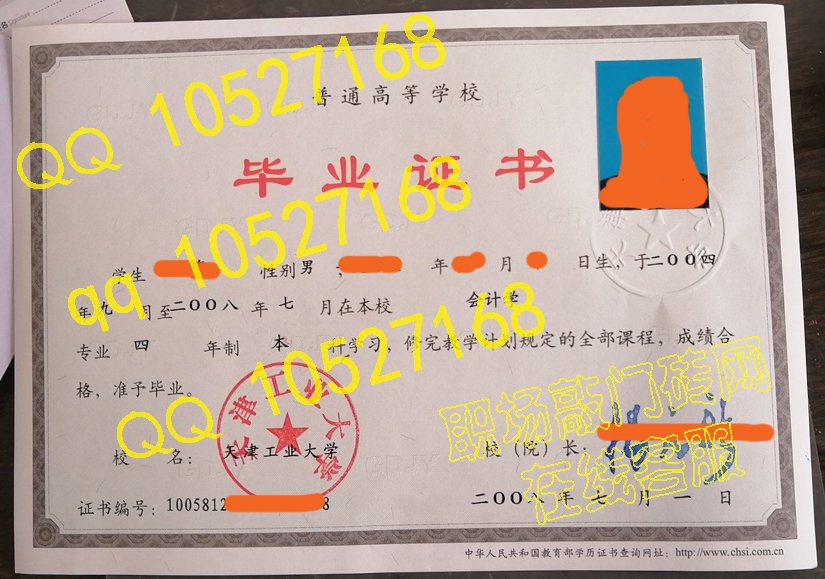 普通高等学校
毕业证书
学生 性别 男 , 年 月 日生，于二〇〇四
年 九 月至二〇〇八 年 七 月在本校 会计学
专业 四 年制 本 科学习，修完教学计划规定的全部课程，成绩合
格，准予毕业。
校 名： 天津工业大学
校（院）长：
证书编号：1005812 8
二〇〇八 年 七 月 一 日
中华人民共和国教育部学历证书查询网址：http://www.chsi.com.cn
天津工业大学
QQ 10527168
qq 10527168
QQ 10527168
职场敲门砖网
在线客服